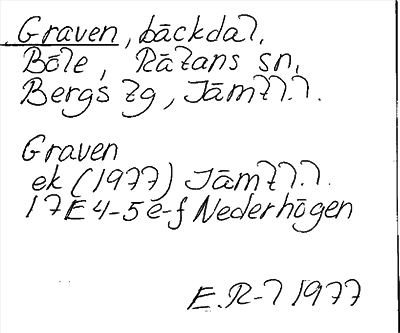 Graven, bäckdal,
Böle, Rätans sn,
Bergs tg, Jämtl.l.
Graven
ek (1977) Jämtl.l.
17E 4-5 e-f Nederhögen
E.R-l 1977